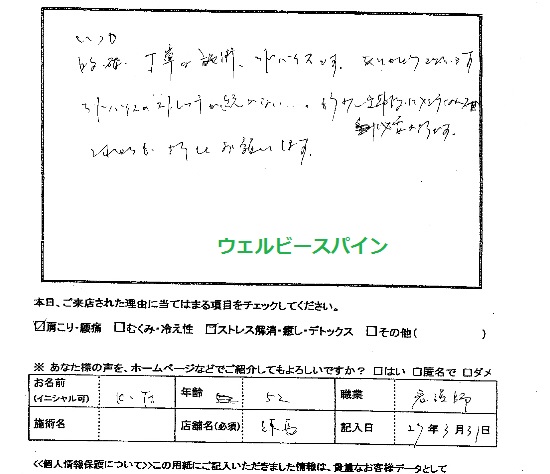 いつも
的確、丁寧な施術、アドバイスです。ありがとうございます
アドバイスのストレッチが続かない...。
これからも よろしくお願いします。
ウェルビースパイン
本日、ご来店された理由に当てはまる項目をチェックしてください。
☑肩こり・腰痛 □むくみ・冷え性 ☑ストレス解消・癒し・デトックス □その他( )
※ あなた様の声を、ホームページなどでご紹介してもよろしいですか？ □はい □匿名で □ダメ
お名前(イニシャル可) 年齢 52 職業
施術名 店舗名(必須) 練馬 記入日 27年3月31日
<<個人情報保護について>>この用紙にご記入いただきました情報は、貴重なお客様データとして